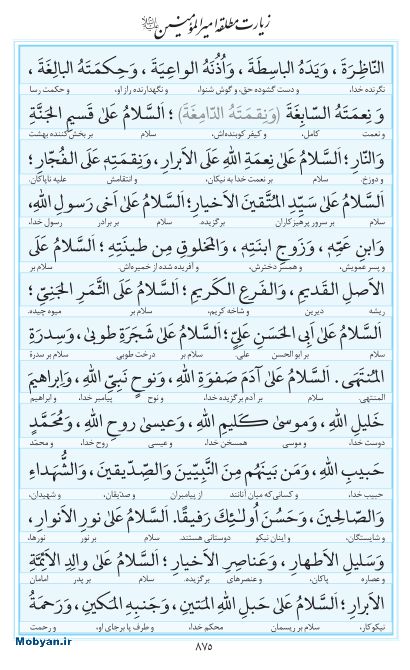 زیارت مطلقه امیرالمؤمنین علیه‌السلام
النّاظِرَةَ ، وَيَدَهُ الباسِطَةَ ، وَاُذُنَهُ الواعِيَةَ ، وَحِكمَتَهُ البالِغَةَ ،
نگرنده خدا، و دست گشوده حق، و گوش شنوا، و نگهدارنده راز او، و حکمت رسا
وَ نِعمَتَهُ السّابِغَةَ (وَنِقمَتَهُ الدّامِغَةَ) ؛ اَلسَّلامُ عَلىٰ قَسيمِ الجَنَّةِ
و نعمت کامل، و کیفر کوبنده‌اش، سلام بر بخش‌کننده بهشت
وَالنّارِ ؛ اَلسَّلامُ عَلىٰ نِعمَةِ اللهِ عَلَى الاَبرارِ ، وَنِقمَتِهِ عَلَى الفُجّارِ ؛
و دوزخ. سلام بر نعمت خدا به نیکان، و انتقامش علیه ناپاکان.
اَلسَّلامُ عَلىٰ سَيِّدِ المُتَّقينَ الاَخيارِ ؛ اَلسَّلامُ عَلىٰ اَخى رَسولِ اللهِ،
سلام بر سرور پرهیزکاران برگزیده. سلام بر برادر رسول خدا،
وَابنِ عَمِّهِ ، وَزَوجِ ابنَتِهِ ، وَالمَخلوقِ مِن طينَتِهِ ؛ اَلسَّلامُ عَلَى
و پسر عمویش، و همسر دخترش، و آفریده شده از خمیره‌اش. سلام بر
الاَصلِ القَديمِ ، وَالفَرعِ الكَريمِ ؛ اَلسَّلامُ عَلَى الثَّمَرِ الجَنِىِّ ؛
ریشه دیرین و شاخه کریم. سلام بر میوه چیده.
اَلسَّلامُ عَلىٰ اَبِى الحَسَنِ عَلِىٍّ ؛ اَلسَّلامُ عَلىٰ شَجَرَةِ طوبىٰ ، وَسِدرَةِ
سلام بر ابوالحسن علی. سلام بر درخت طوبی و سدرة
المُنتَهىٰ . اَلسَّلامُ عَلىٰ آدَمَ صَفوَةِ اللهِ ، وَنوحٍ نَبِىِّ اللهِ، وَاِبراهيمَ
المنتهی. سلام بر آدم برگزیده خدا، و نوح پیامبر خدا، و ابراهیم
خَليلِ اللهِ ، وَموسىٰ كَليمِ اللهِ ، وَعيسىٰ روحِ اللهِ ، وَمُحَمَّدٍ
دوست خدا، و موسی همسخن خدا، و عیسی روح خدا، و محمّد
حَبيبِ اللهِ ، وَمَن بَينَهُم مِنَ النَّبِيّينَ وَالصِّدّيقينَ ، وَالشُّهَداءِ
حبیب خدا، و کسانی که میان آنانند از پیامبران و صدّیقان، و شهیدان،
وَالصّالِحينَ ، وَحَسُنَ اُولٰئِكَ رَفيقًا. اَلسَّلامُ عَلىٰ نورِ الاَنوارِ ،
و شایستگان، و اینان نیکو دوستانی هستند. سلام بر نور نورها،
وَسَليلِ الاَطهارِ ، وَعَناصِرِ الاَخيارِ ؛ اَلسَّلامُ عَلىٰ والِدِ الاَئِمَّةِ
و عصاره پاکان، و عنصرهای برگزیده. سلام بر پدر امامان
الاَبرارِ ؛ اَلسَّلامُ عَلىٰ حَبلِ اللهِ المَتينِ ، وَجَنبِهِ المَكينِ ، وَرَحمَةُ
نیکوکار، سلام بر ریسمان محکم خدا، و طرف پا برجای او، و رحمت
۸۷۵
Mobyan.ir